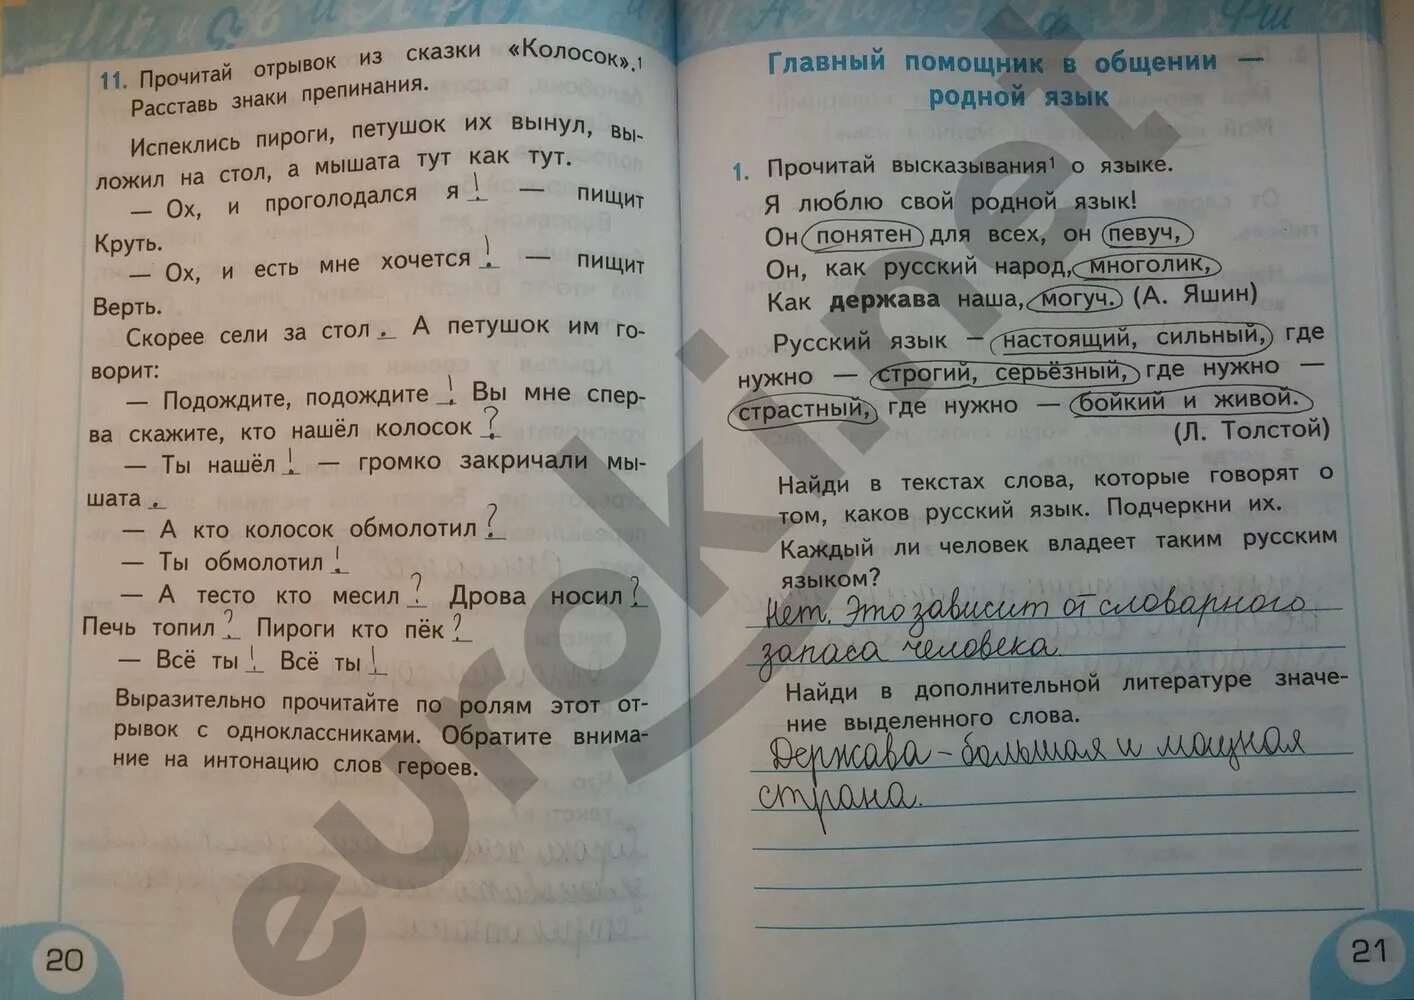 11. Прочитай отрывок из сказки «Колосок».1
Расставь знаки препинания.
Испеклись пироги, петушок их вынул, вы-
ложил на стол, а мышата тут как тут.
— Ох, и проголодался я ! — пищит
Круть.
— Ох, и есть мне хочется ! — пищит
Верть.
Скорее сели за стол . А петушок им го-
ворит:
— Подождите, подождите ! Вы мне спер-
ва скажите, кто нашёл колосок ?
— Ты нашёл ! — громко закричали мы-
шата .
— А кто колосок обмолотил ?
— Ты обмолотил !
— А тесто кто месил ? Дрова носил ?
Печь топил ? Пироги кто пёк ?
— Всё ты ! Всё ты !
Выразительно прочитайте по ролям этот от-
рывок с одноклассниками. Обратите внима-
ние на интонацию слов героев.
20
Главный помощник в общении —
родной язык
1. Прочитай высказывания1 о языке.
Я люблю свой родной язык!
Он понятен для всех, он певуч,
Он, как русский народ, многолик,
Как держава наша, могуч. (А. Яшин)
Русский язык — настоящий, сильный, где
нужно — строгий, серьёзный, где нужно —
страстный, где нужно — бойкий и живой.
(Л. Толстой)
Найди в текстах слова, которые говорят о
том, каков русский язык. Подчеркни их.
Каждый ли человек владеет таким русским
языком?
Нет. Это зависит от словарного
запаса человека.
Найди в дополнительной литературе значе-
ние выделенного слова.
Держава - большая и мощная
страна.
21
eurokinet